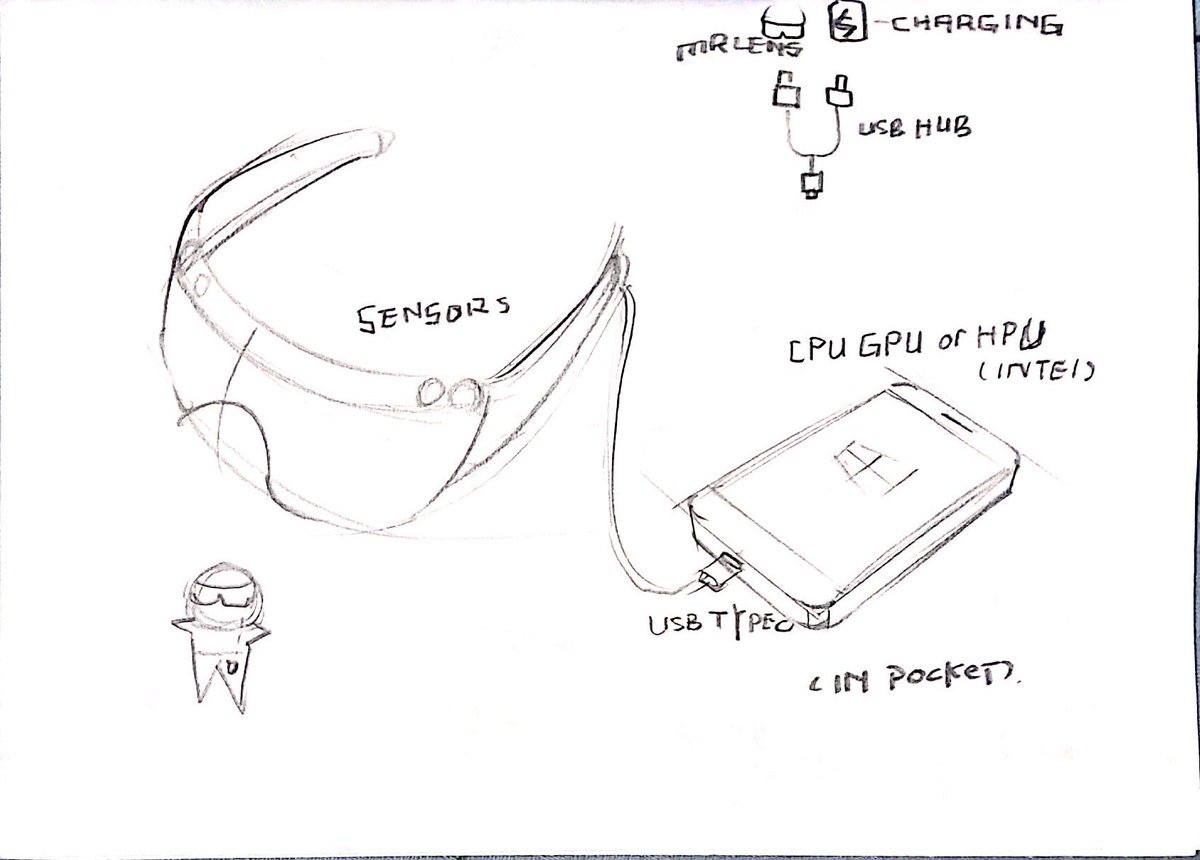 MR LENS
-CHARGING
USB HUB
SENSORS
CPU GPU or HPU
(INTEL)
USB TYPE C
(IN POCKET).